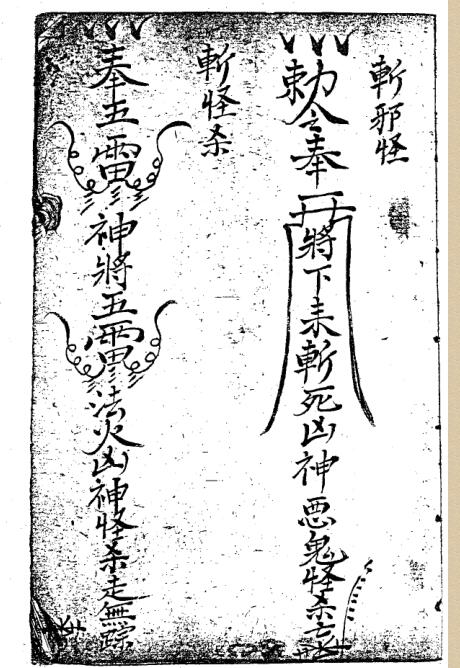 斬邪怪
勅令奉天將下来斬死凶神惡鬼怪杀
斬怪杀
奉五雷神將五雷法火凶神怪杀走無踪